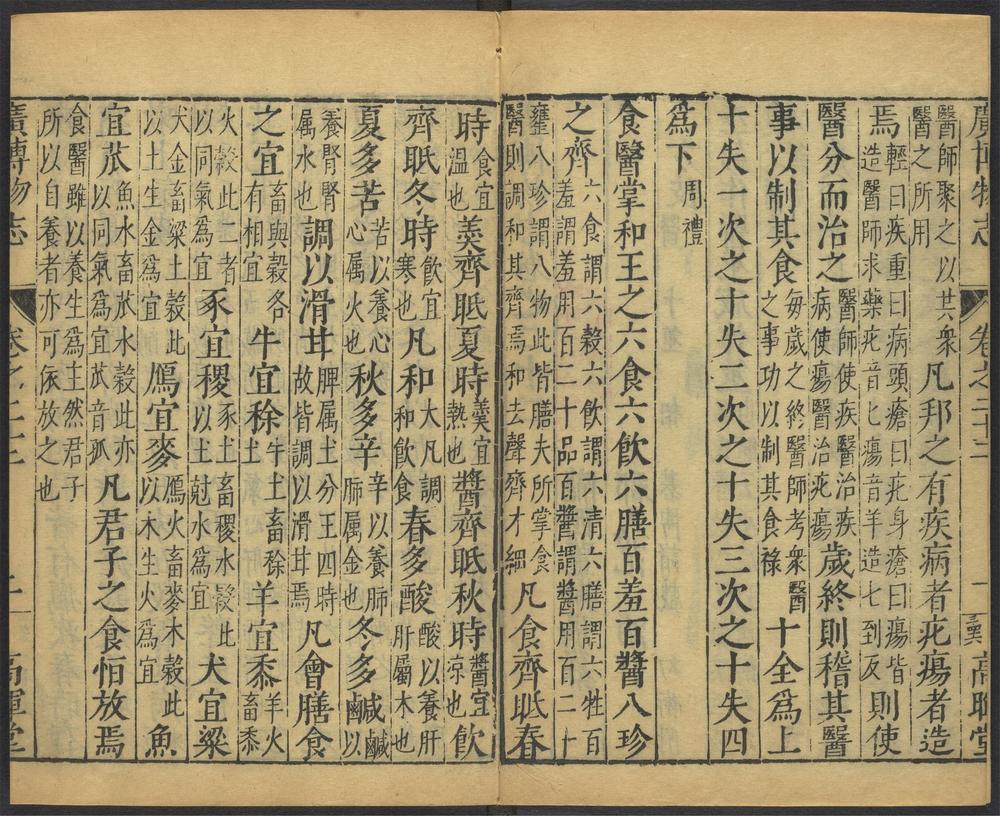 廣博物志 卷之二十二 一 高暉堂
醫師聚之以共衆醫之所用凡邦之有疾病者疕瘍者造
焉輕曰疾重曰病頭瘡曰疕身瘡曰瘍皆造醫師求藥疕音七瘍音羊造七到反則使
醫分而治之醫師使疾醫治疾病使瘍醫治疕瘍歲終則稽其醫
事以制其食每歲之終醫師考衆醫之事功以制其食祿十全爲上
十失一次之十失二次之十失三次之十失四
爲下周禮
食醫掌和王之六食六飲六膳百羞百醬八珍
之齊六食謂六穀六飲謂六清六膳謂六牲百羞謂羞用百二十品百醬謂醬用百二十
罋八珍謂八物此皆膳夫所掌食醫則調和其齊焉和去聲齊才細凡食齊眡春
時食宜溫也羹齊眡夏時羹宜熱也醬齊眡秋時醬宜凉也飲
齊眡冬時飲宜寒也凡和大凡調和飲食春多酸酸以養肝肝屬木也
夏多苦苦以養心心属火也秋多辛辛以養肺肺属金也冬多鹹鹹以
養腎腎属水也調以滑甘脾属土分王四時故皆調以滑甘焉凡會膳食
之宜畜與穀各有相宜牛宜稌牛土畜稌土羊宜黍羊火畜黍
火穀此二者以同氣爲宜豕宜稷豕土畜稷水穀此以土尅水爲宜犬宜粱
犬金畜粱土穀此以土生金爲宜鴈宜麥鴈火畜麥木穀此以木生火爲宜魚
宜苽魚水畜苽水穀此亦以同氣爲宜苽音孤凡君子之食恒放焉
食醫雖以養生爲主然君子所以自養者亦可依放之也
廣博物志 卷之二十二 高暉堂